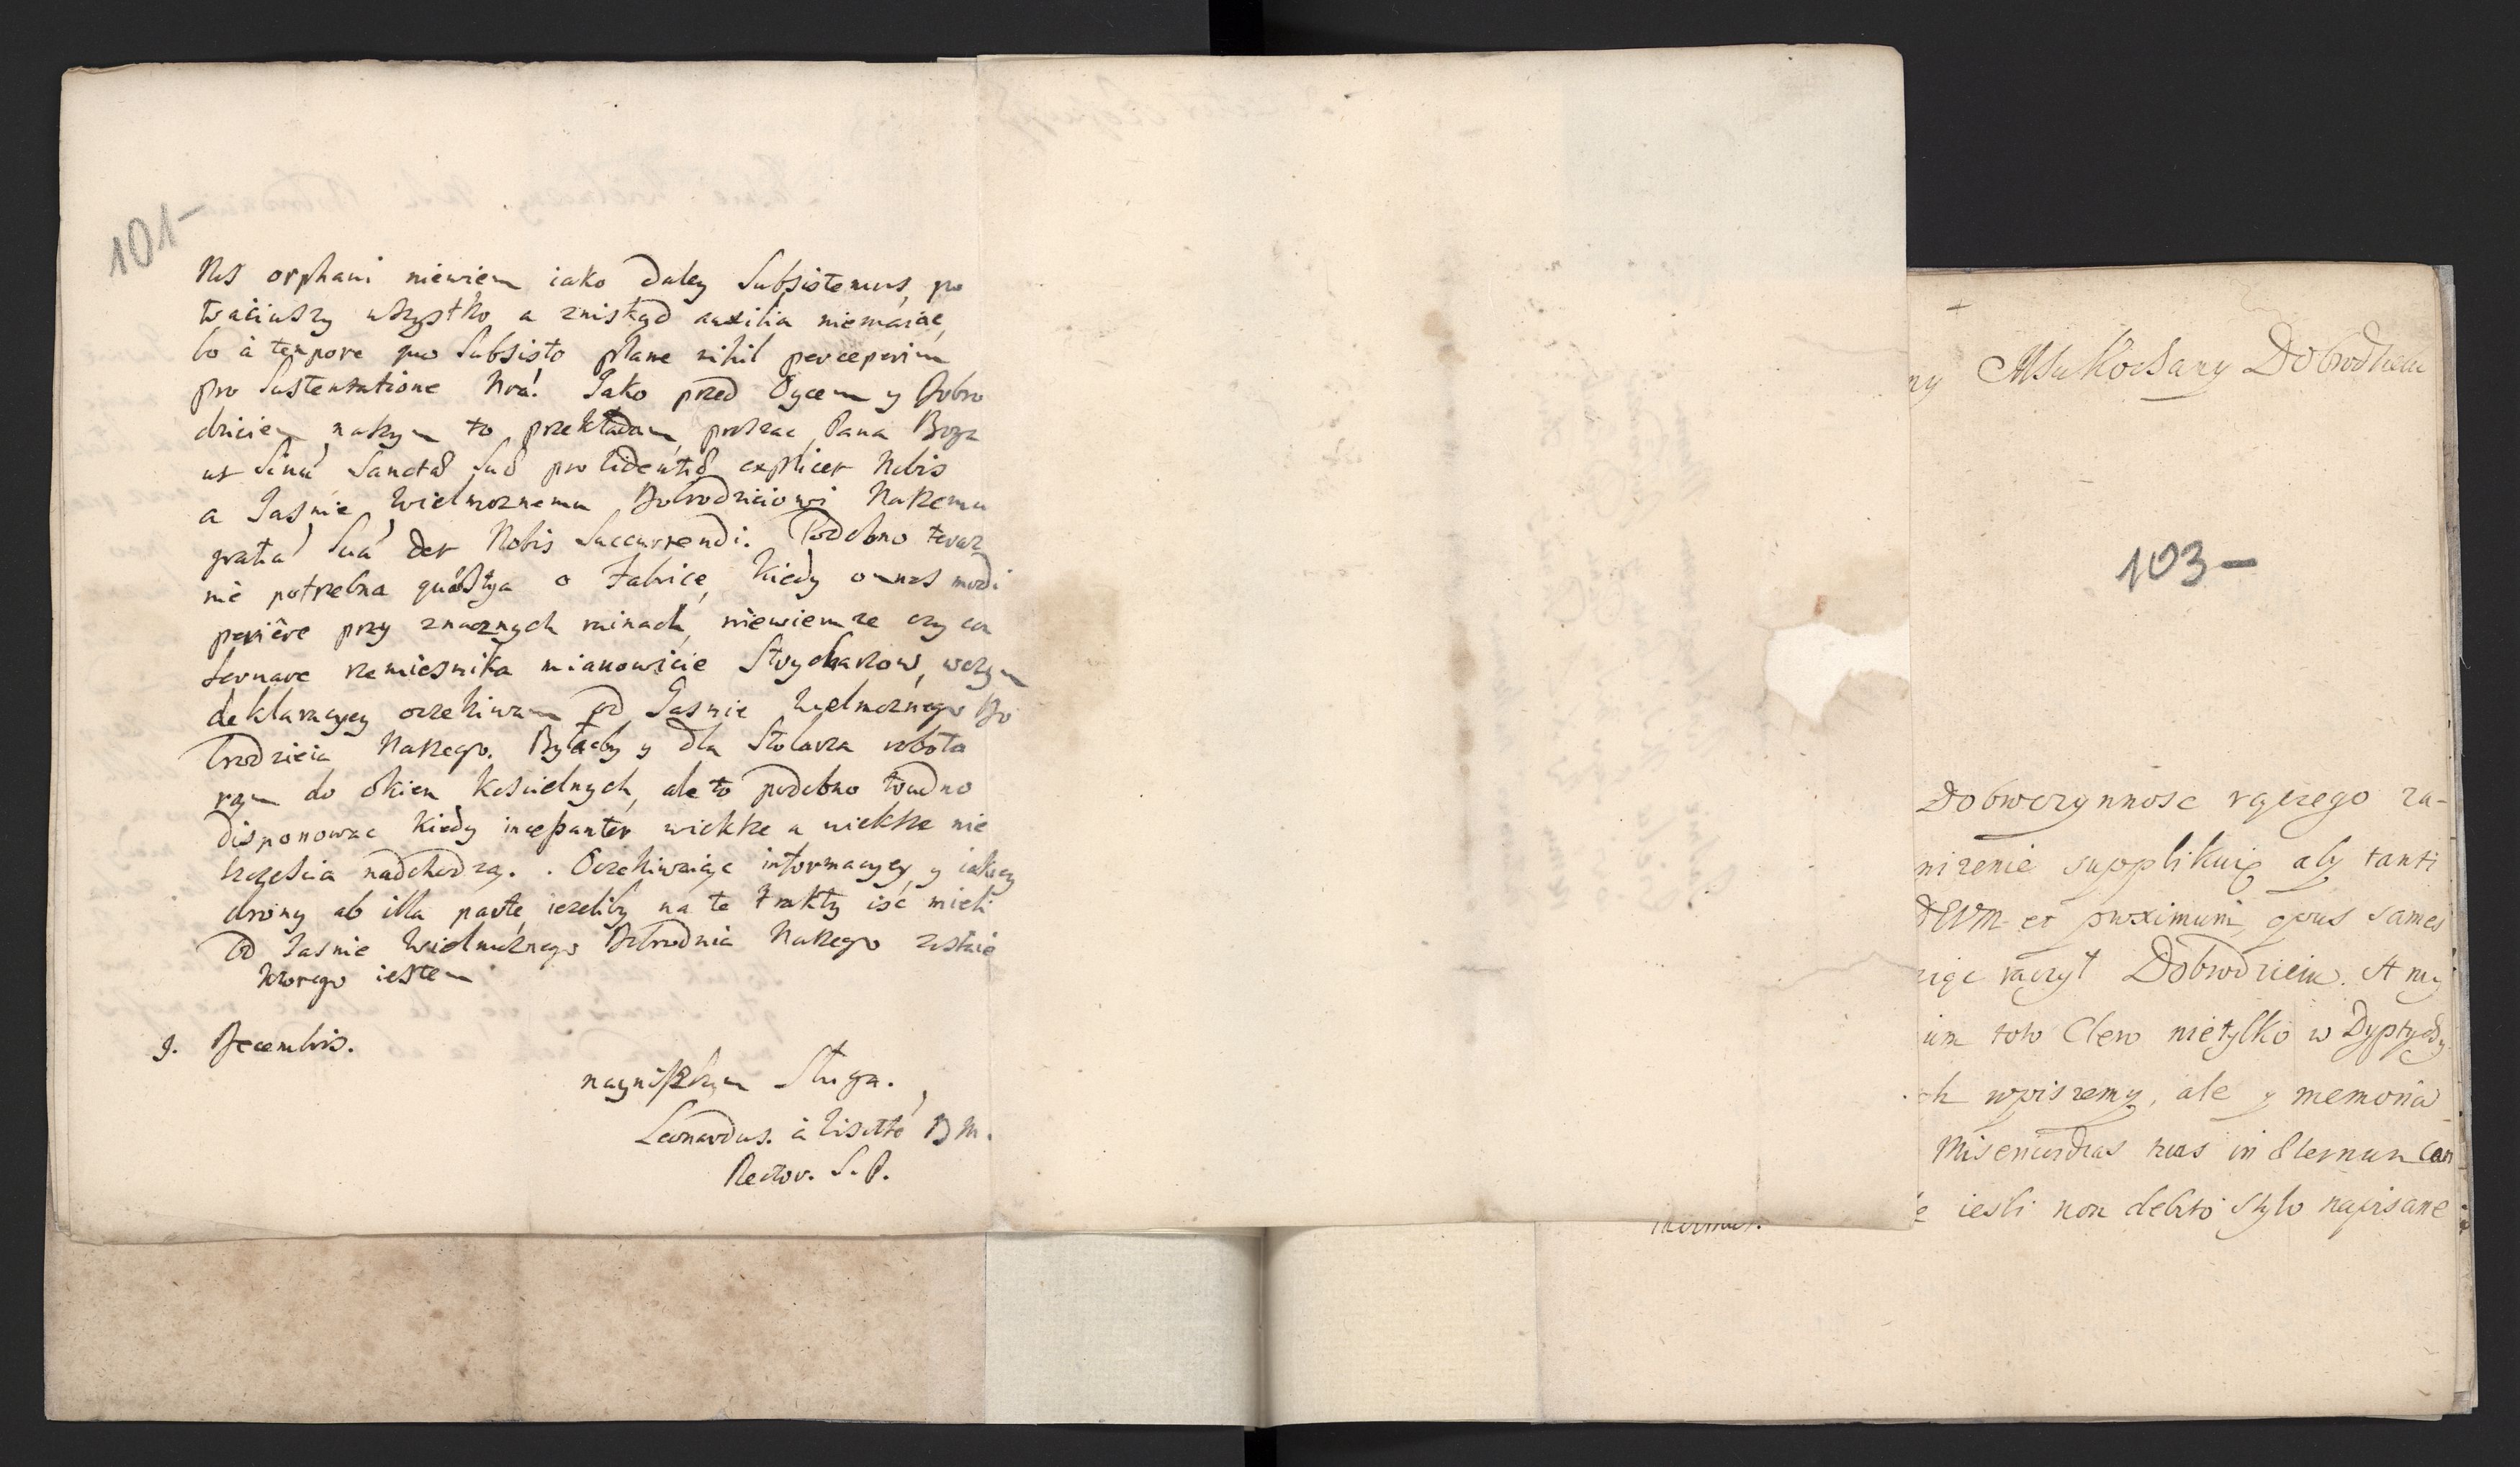 101-
Nos orphani niewiem iako daley Subsistemus, po
traciwszy wszystko a znikąd auxilia niemaiąc,
bo à tempore quo Subsisto plane nihil perceperim
pro Sustentatione Nrâ! Jako przed Oycem y Dobro
dzieiem naszym to przekładam, prosząc Pana Boga
ut Sinû Sanctæ Suæ providentiæ explicet Nobis
a Jasnie Wielmoznemu Dobrodzieiowi Naszemu
gratiâ Suâ det Nobis Succurrendi. Podobno teraz
nie potrzebna quæstya o fabrice, kiedy omnes modi
periêre przy znacznych ruinach, niewiem ze czy con
fernare rzemiesnika mianowicie Strycharzow, w czym
deklaracyey oczekiwam od Jasnie Wielmoznego Do
brodzieia Naszego. Byłaby y dla Stolarza robota
ram do okien koscielnych, ale to podobno trudno
disponowac kiedy incessanter wieksze a wieksze nie
szczęscia nadchodzą. . Oczekiwaiąc informacyey y iakiey
obrony ab illa parte iezeliby na te trakty isć mieli
od Jasnie Wielmoznego Dobrodzieia Naszego zostaię
ktorego iestem
9. Decembris.
nayniższym Sługa.
Leonardus. à Visitatē B M.
Rector. S. P.
ny Mśu Kochany Dobrodzieiu
103-
Dobroczynnosc rączego za-
nizenie supplikuię aby tanti
DEVM et proximum opus sames
ciąc raczył Dobrodzieiu. A my
um toto Clero nietylko w Dyptychy
ch wpiszemy, ale y memoriâ
Misericordias tuas in Eternum Can
e iesli non debito stylo napisane